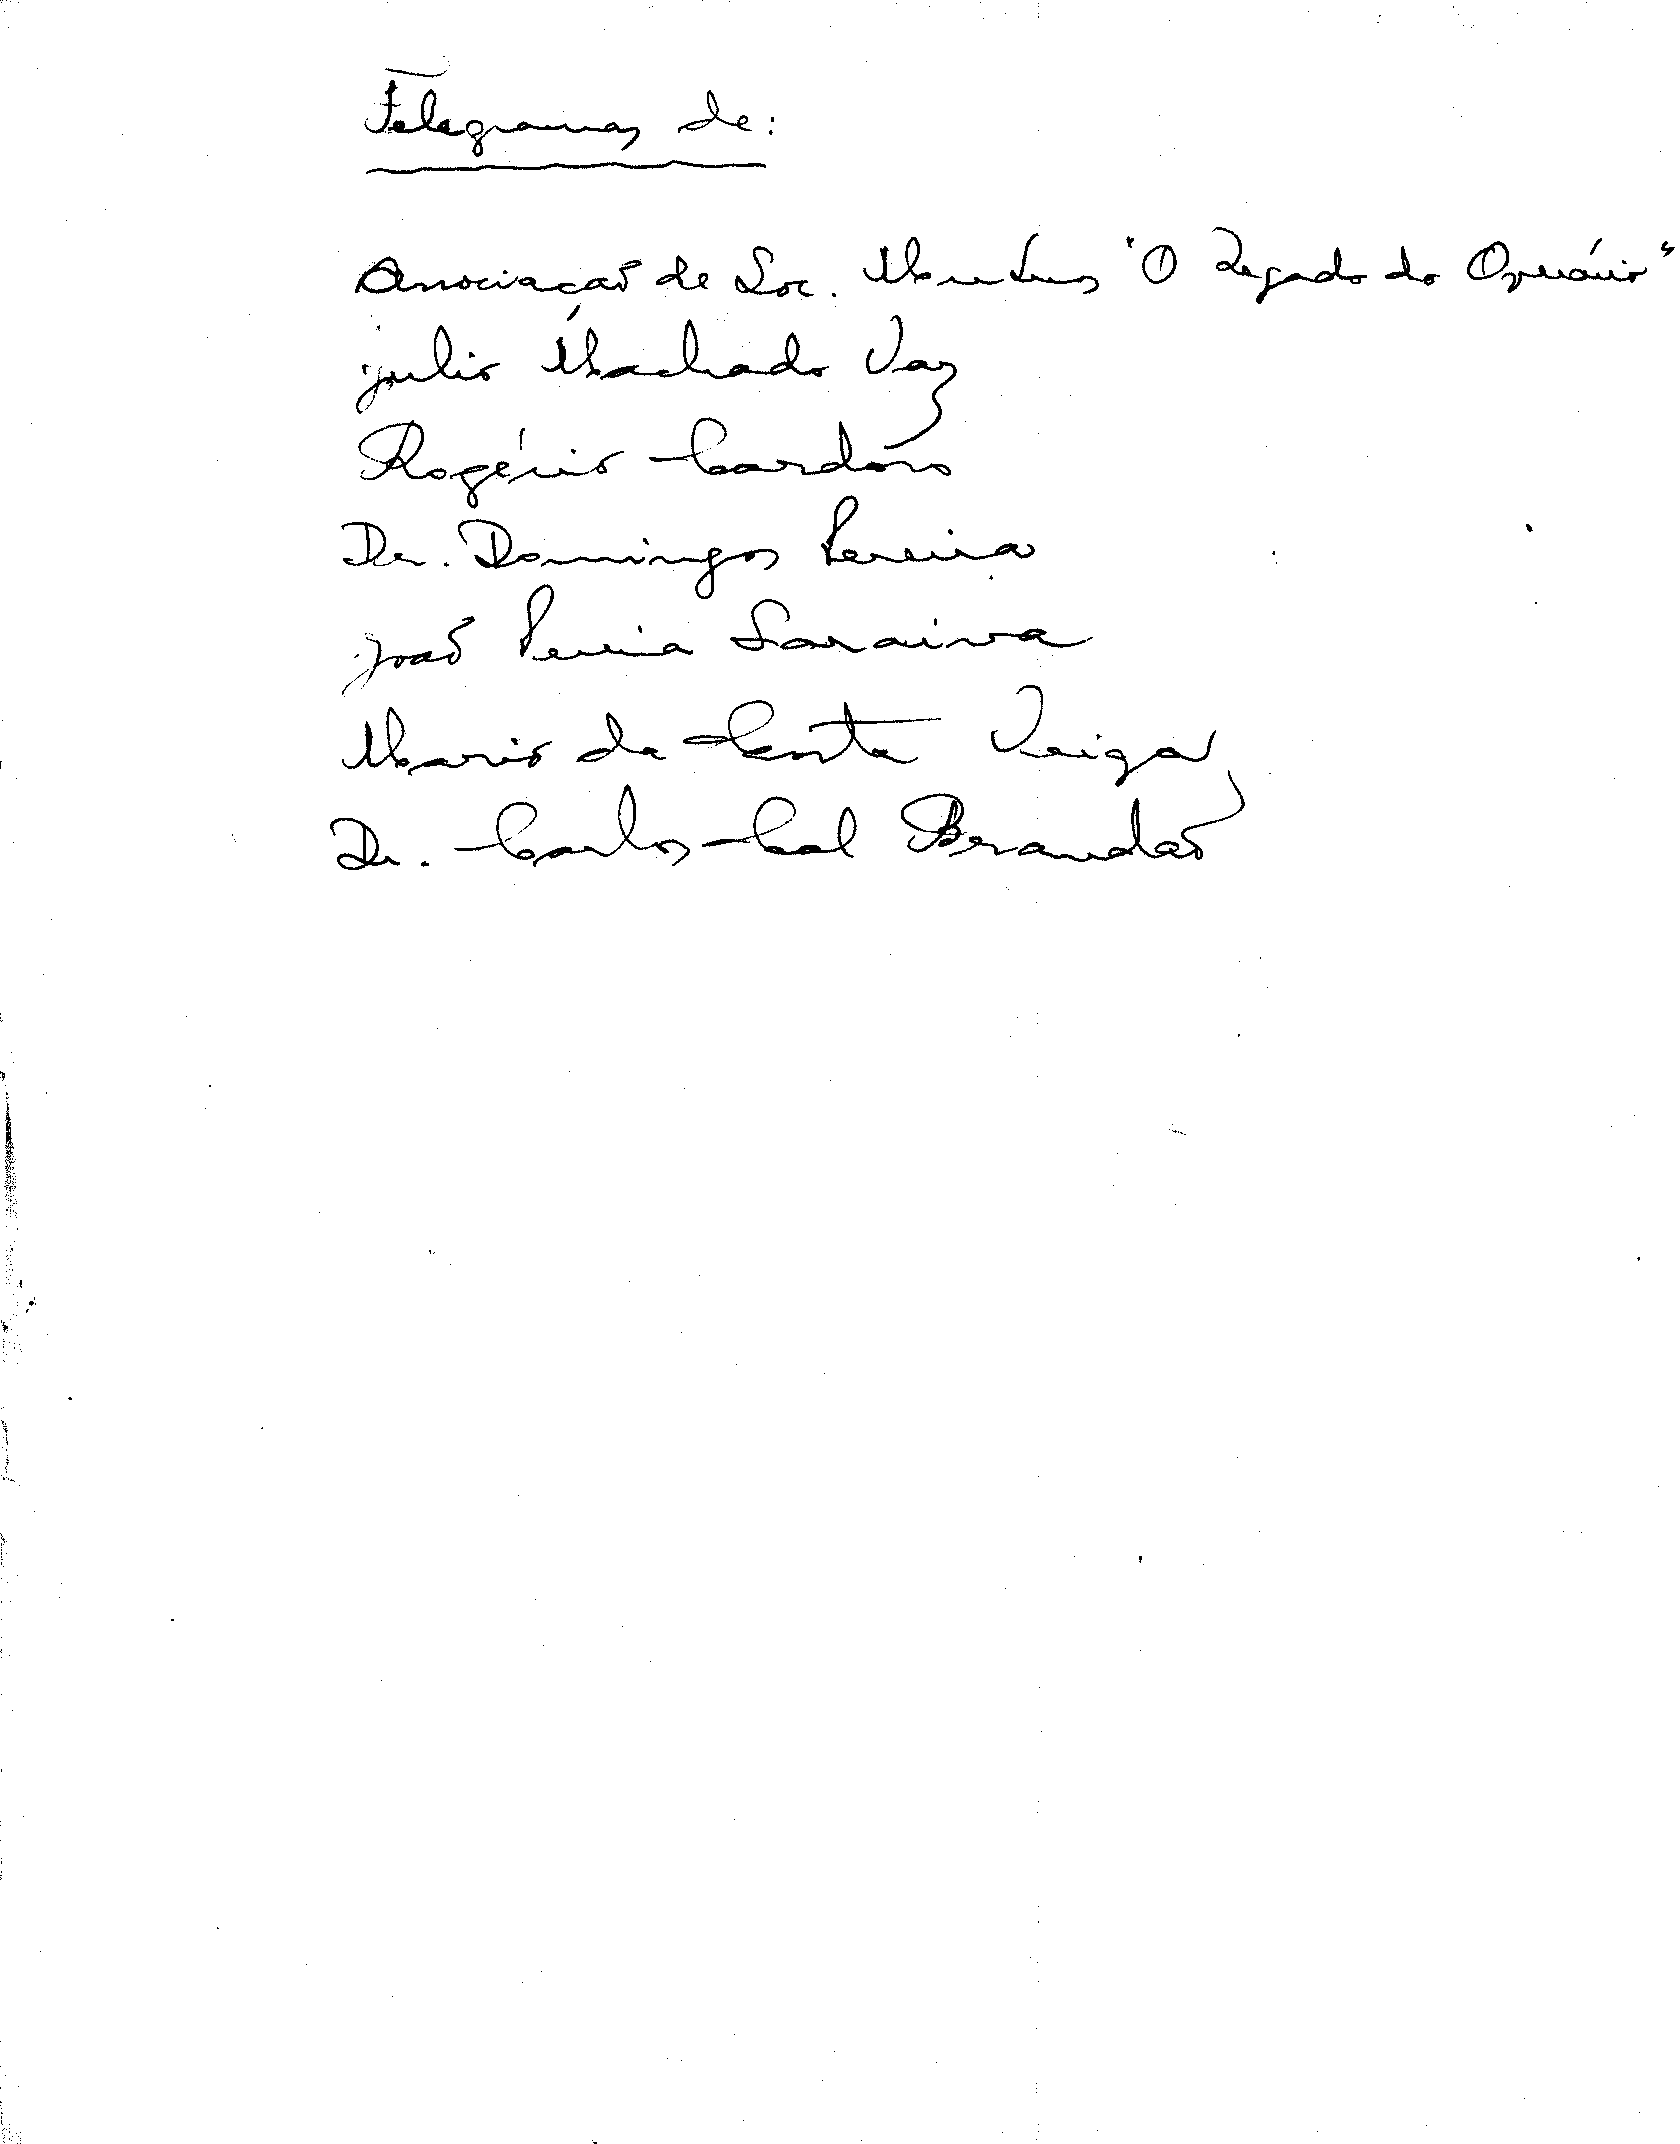 Telegramas de:
Associação de Soc. Mutuos "O Legado do Operário"
Julio Machado Vaz
Rogério Cardoso
Dr. Domingos Pereira
João Pereira Saraiva
Mario da Costa Veiga
Dr. Carlos Cal Brandão